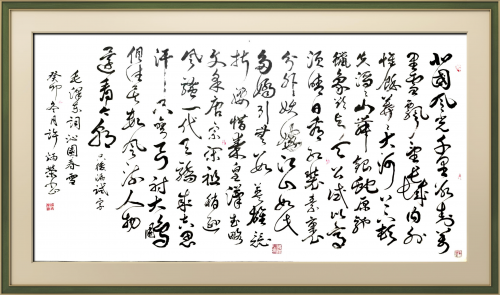 北國風光千里冰封萬
里雪飄望長城内外
惟餘莽莽大河上下頓
失滔滔山舞銀蛇原馳
蠟象欲與天公試比高
須晴日看紅裝素裹
分外妖嬈江山如此
多嬌引無數英雄競
折腰惜秦皇漢武略輸
文采唐宗宋祖稍遜
風騷一代天驕成吉思
汗只彎弓射大鵰
俱往矣數風流人物
還看今朝
只後漏識字
毛澤東詞沁園春雪
癸卯冬月許炳榮書